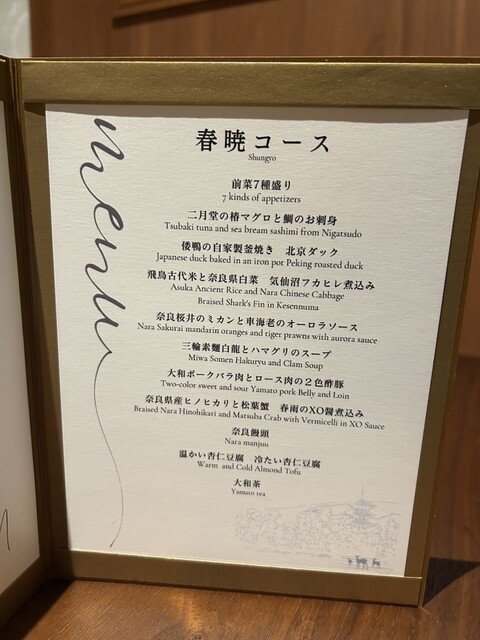 menu
春暁コース
Shungyo
前菜7種盛り
7 kinds of appetizers
二月堂の椿マグロと鯛のお刺身
Tsubaki tuna and sea bream sashimi from Nigatsudo
倭鴨の自家製釜焼き 北京ダック
Japanese duck baked in an iron pot Peking roasted duck
飛鳥古代米と奈良県白菜 気仙沼フカヒレ煮込み
Asuka Ancient Rice and Nara Chinese Cabbage
Braised Shark's Fin in Kesennuma
奈良桜井のミカンと車海老のオーロラソース
Nara Sakurai mandarin oranges and tiger prawns with aurora sauce
三輪素麺白龍とハマグリのスープ
Miwa Somen Hakuryu and Clam Soup
大和ポークバラ肉とロース肉の2色酢豚
Two-color sweet and sour Yamato pork Belly and Loin
奈良県産ヒノヒカリと松葉蟹 春雨のXO醤煮込み
Braised Nara Hinohikari and Matsuba Crab with Vermicelli in XO Sauce
奈良饅頭
Nara manjuu
温かい杏仁豆腐 冷たい杏仁豆腐
Warm and Cold Almond Tofu
大和茶
Yamato tea